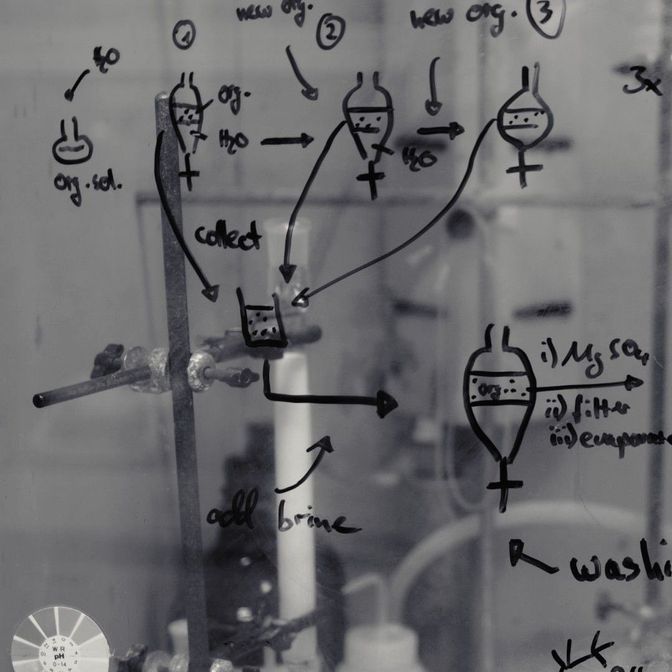 new org.
new org.
①
②
③
H₂O
org.
3x
H₂O
H₂O
org. sol.
collect
i) MgSO₄
org.
ii) filter
iii) evaporate
add brine
washi
W R
pH
0-14